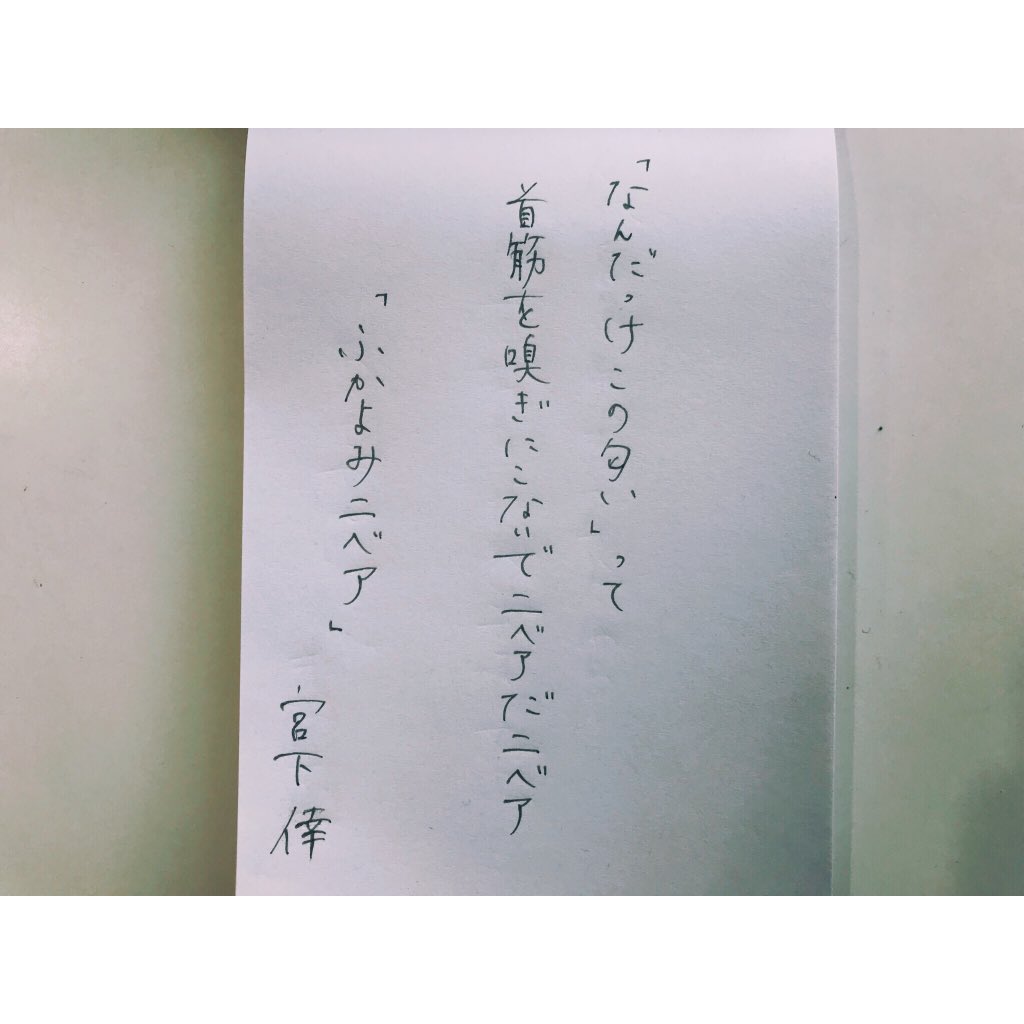 「なんだっけこの匂い」って
首筋を嗅ぎにこないでニベアだニベア
「ふかよみニベア」
宮下倖